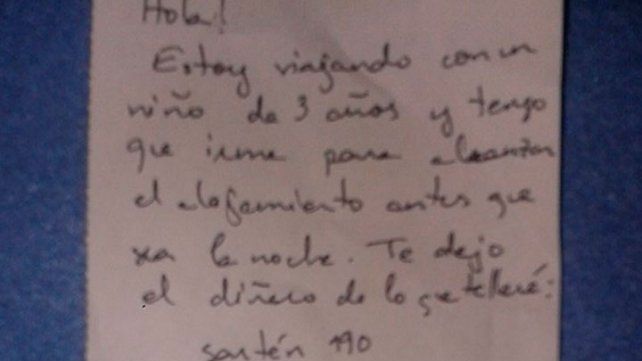 Hola!
Estoy viajando con un
niño de 3 años y tengo
que irme para alcanzar
el alojamiento antes que
sea la noche. Te dejo
el diñero de lo que llevé:
sartén 190